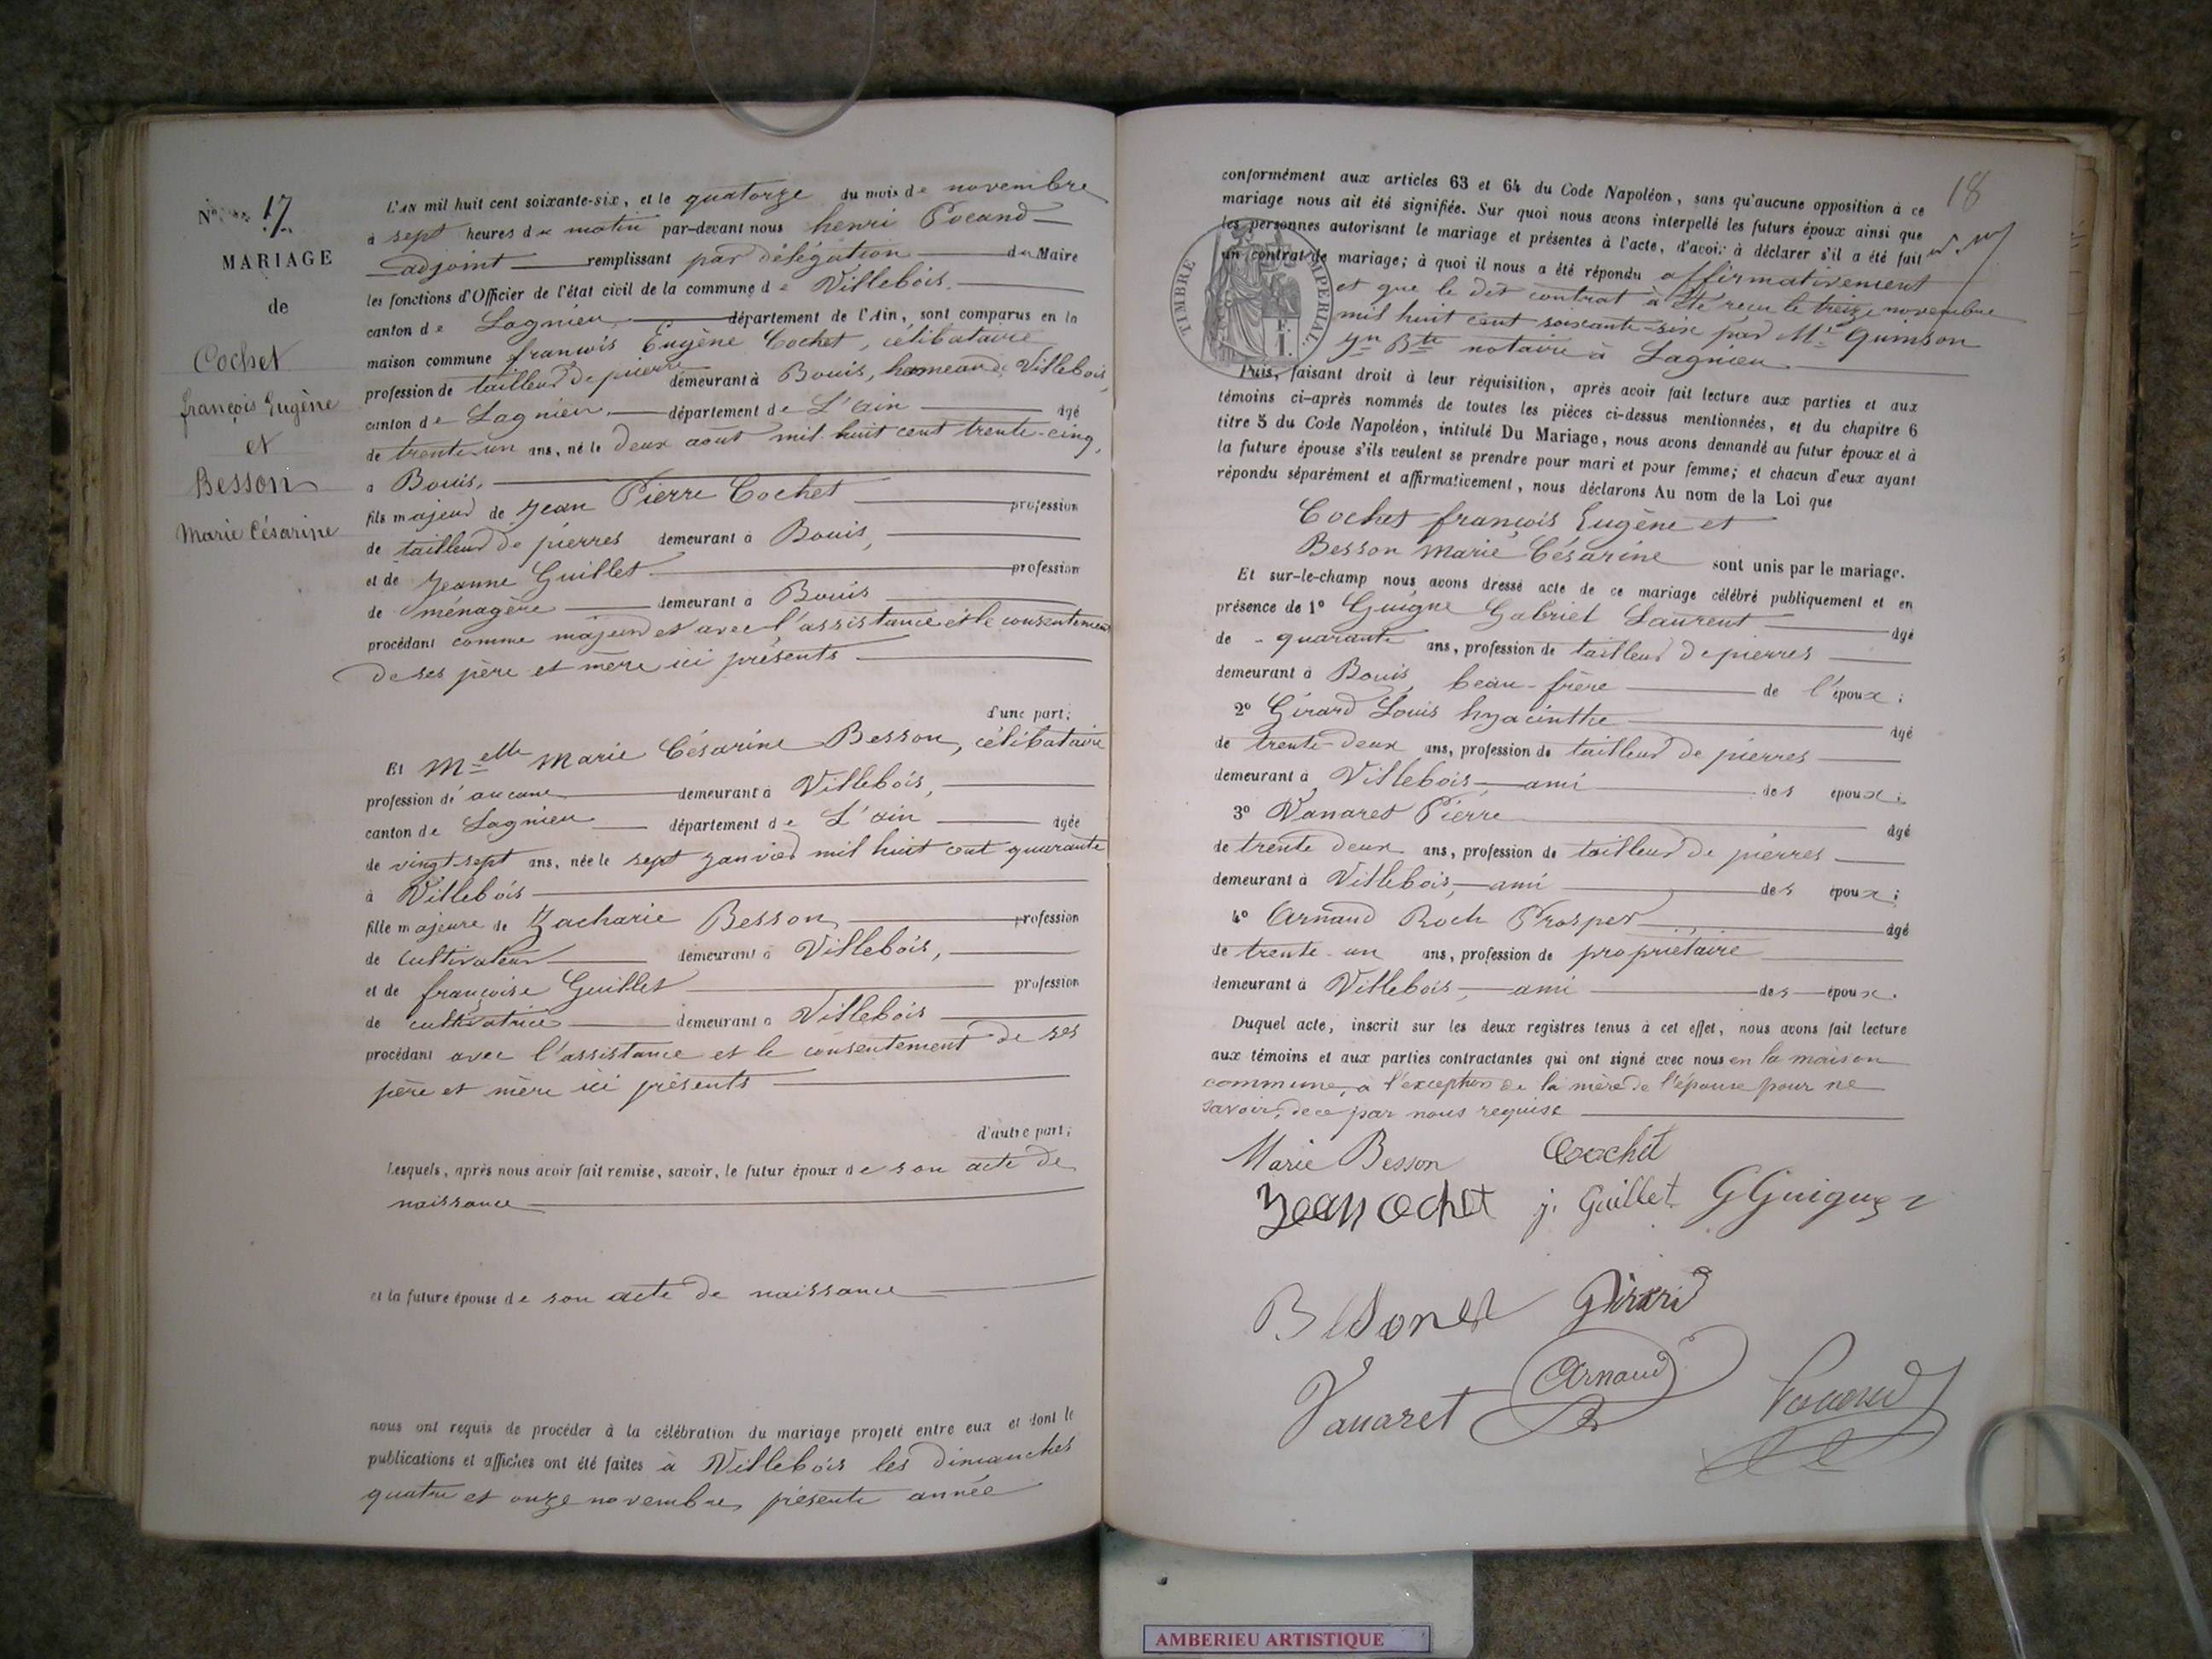 N° 17
MARIAGE
de
Cochet
françois Eugène
et
Besson
Marie Césarine
L'AN mil huit cent soixante-six, et le quatorze du mois de novembre
à sept heures du matin par-devant nous henri Pocand
adjoint remplissant par délégation du Maire
les fonctions d'Officier de l'état civil de la commune de Villebois,
canton de Lagnieu département de l'Ain, sont comparus en la
maison commune françois Eugène Cochet, célibataire
profession de tailleur de pierre demeurant à Bouis, hameau de Villebois,
canton de Lagnieu, département de L'ain âgé
de trente-un ans, né le deux août mil huit cent trente-cinq,
à Bouis,
fils majeur de Jean Pierre Cochet profession
de tailleur de pierres demeurant à Bouis,
et de Jeanne Guillet profession
de ménagère demeurant à Bouis
procédant comme majeur et avec l'assistance et le consentement
de ses père et mère ici présents
d'une part;
Et Melle Marie Césarine Besson, célibataire
profession d'aucune demeurant à Villebois,
canton de Lagnieu département de L'ain âgée
de vingt-sept ans, née le sept janvier mil huit cent quarante
à Villebois
fille majeure de Zacharie Besson, profession
de cultivateur demeurant à Villebois,
et de françoise Guillet profession
de cultivatrice demeurant à Villebois
procédant avec l'assistance et le consentement de ses
père et mère ici présents
d'autre part;
Lesquels, après nous avoir fait remise, savoir, le futur époux de son acte de
naissance
et la future épouse de son acte de naissance
nous ont requis de procéder à la célébration du mariage projeté entre eux et dont le
publications et affiches ont été faites à Villebois les dimanches
quatre et onze novembre, présente année
18
conformément aux articles 63 et 64 du Code Napoléon, sans qu'aucune opposition à ce
mariage nous ait été signifiée. Sur quoi nous avons interpellé les futurs époux ainsi que
les personnes autorisant le mariage et présentes à l'acte, d'avoir à déclarer s'il a été fait
un contrat de mariage; à quoi il nous a été répondu affirmativement
et que le dit contrat a été reçu le treize novembre
mil huit cent soixante-six par Me Quinson
Jn Bte notaire à Lagnieu
TIMBRE IMPERIAL
Puis, faisant droit à leur réquisition, après avoir fait lecture aux parties et aux
témoins ci-après nommés de toutes les pièces ci-dessus mentionnées, et du chapitre 6
titre 5 du Code Napoléon, intitulé Du Mariage, nous avons demandé au futur époux et à
la future épouse s'ils veulent se prendre pour mari et pour femme; et chacun d'eux ayant
répondu séparément et affirmativement, nous déclarons Au nom de la Loi que
Cochet françois Eugène et
Besson Marie Césarine sont unis par le mariage.
Et sur-le-champ nous avons dressé acte de ce mariage célébré publiquement et en
présence de 1° Guigne Gabriel Laurent âgé
de quarante ans, profession de tailleur de pierres
demeurant à Bouis, beau-frère de l'époux;
2° Girard Louis hyacinthe âgé
de trente-deux ans, profession de tailleur de pierres
demeurant à Villebois, ami des époux;
3° Vanaret Pierre âgé
de trente deux ans, profession de tailleur de pierres
demeurant à Villebois, ami des époux;
4° Arnaud Roch Prosper âgé
de trente-un ans, profession de propriétaire
demeurant à Villebois, ami des époux.
Duquel acte, inscrit sur les deux registres tenus à cet effet, nous avons fait lecture
aux témoins et aux parties contractantes qui ont signé avec nous en la maison
commune, à l'exception de la mère de l'épouse pour ne
savoir, de ce par nous requise
Marie Besson Cochet
Jean cochet j. Guillet G Guigue
Girard
Vanaret Arnaud Pocand
AMBERIEU ARTISTIQUE